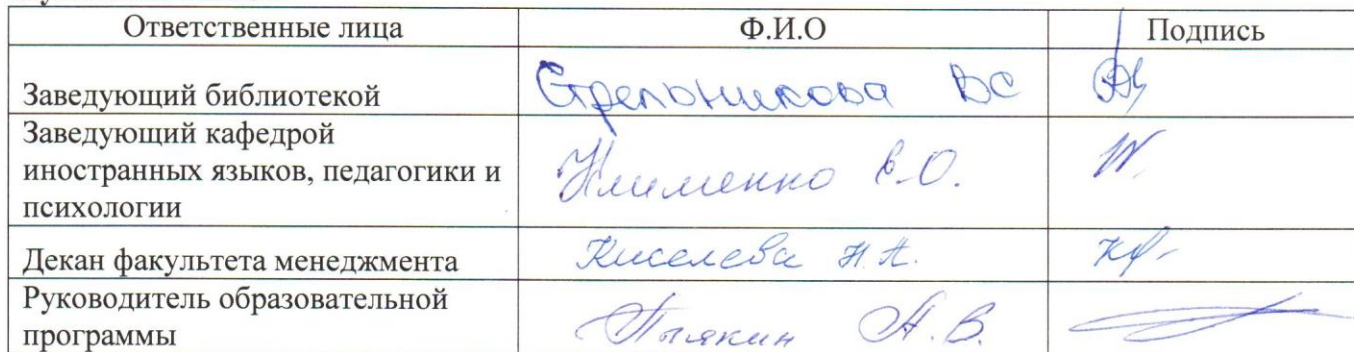 Ответственные лица Ф.И.О Подпись
Заведующий библиотекой Стрельникова ВС
Заведующий кафедрой
иностранных языков, педагогики и Клименко Е.О.
психологии
Декан факультета менеджмента Киселева Н.А.
Руководитель образовательной
программы А.В.